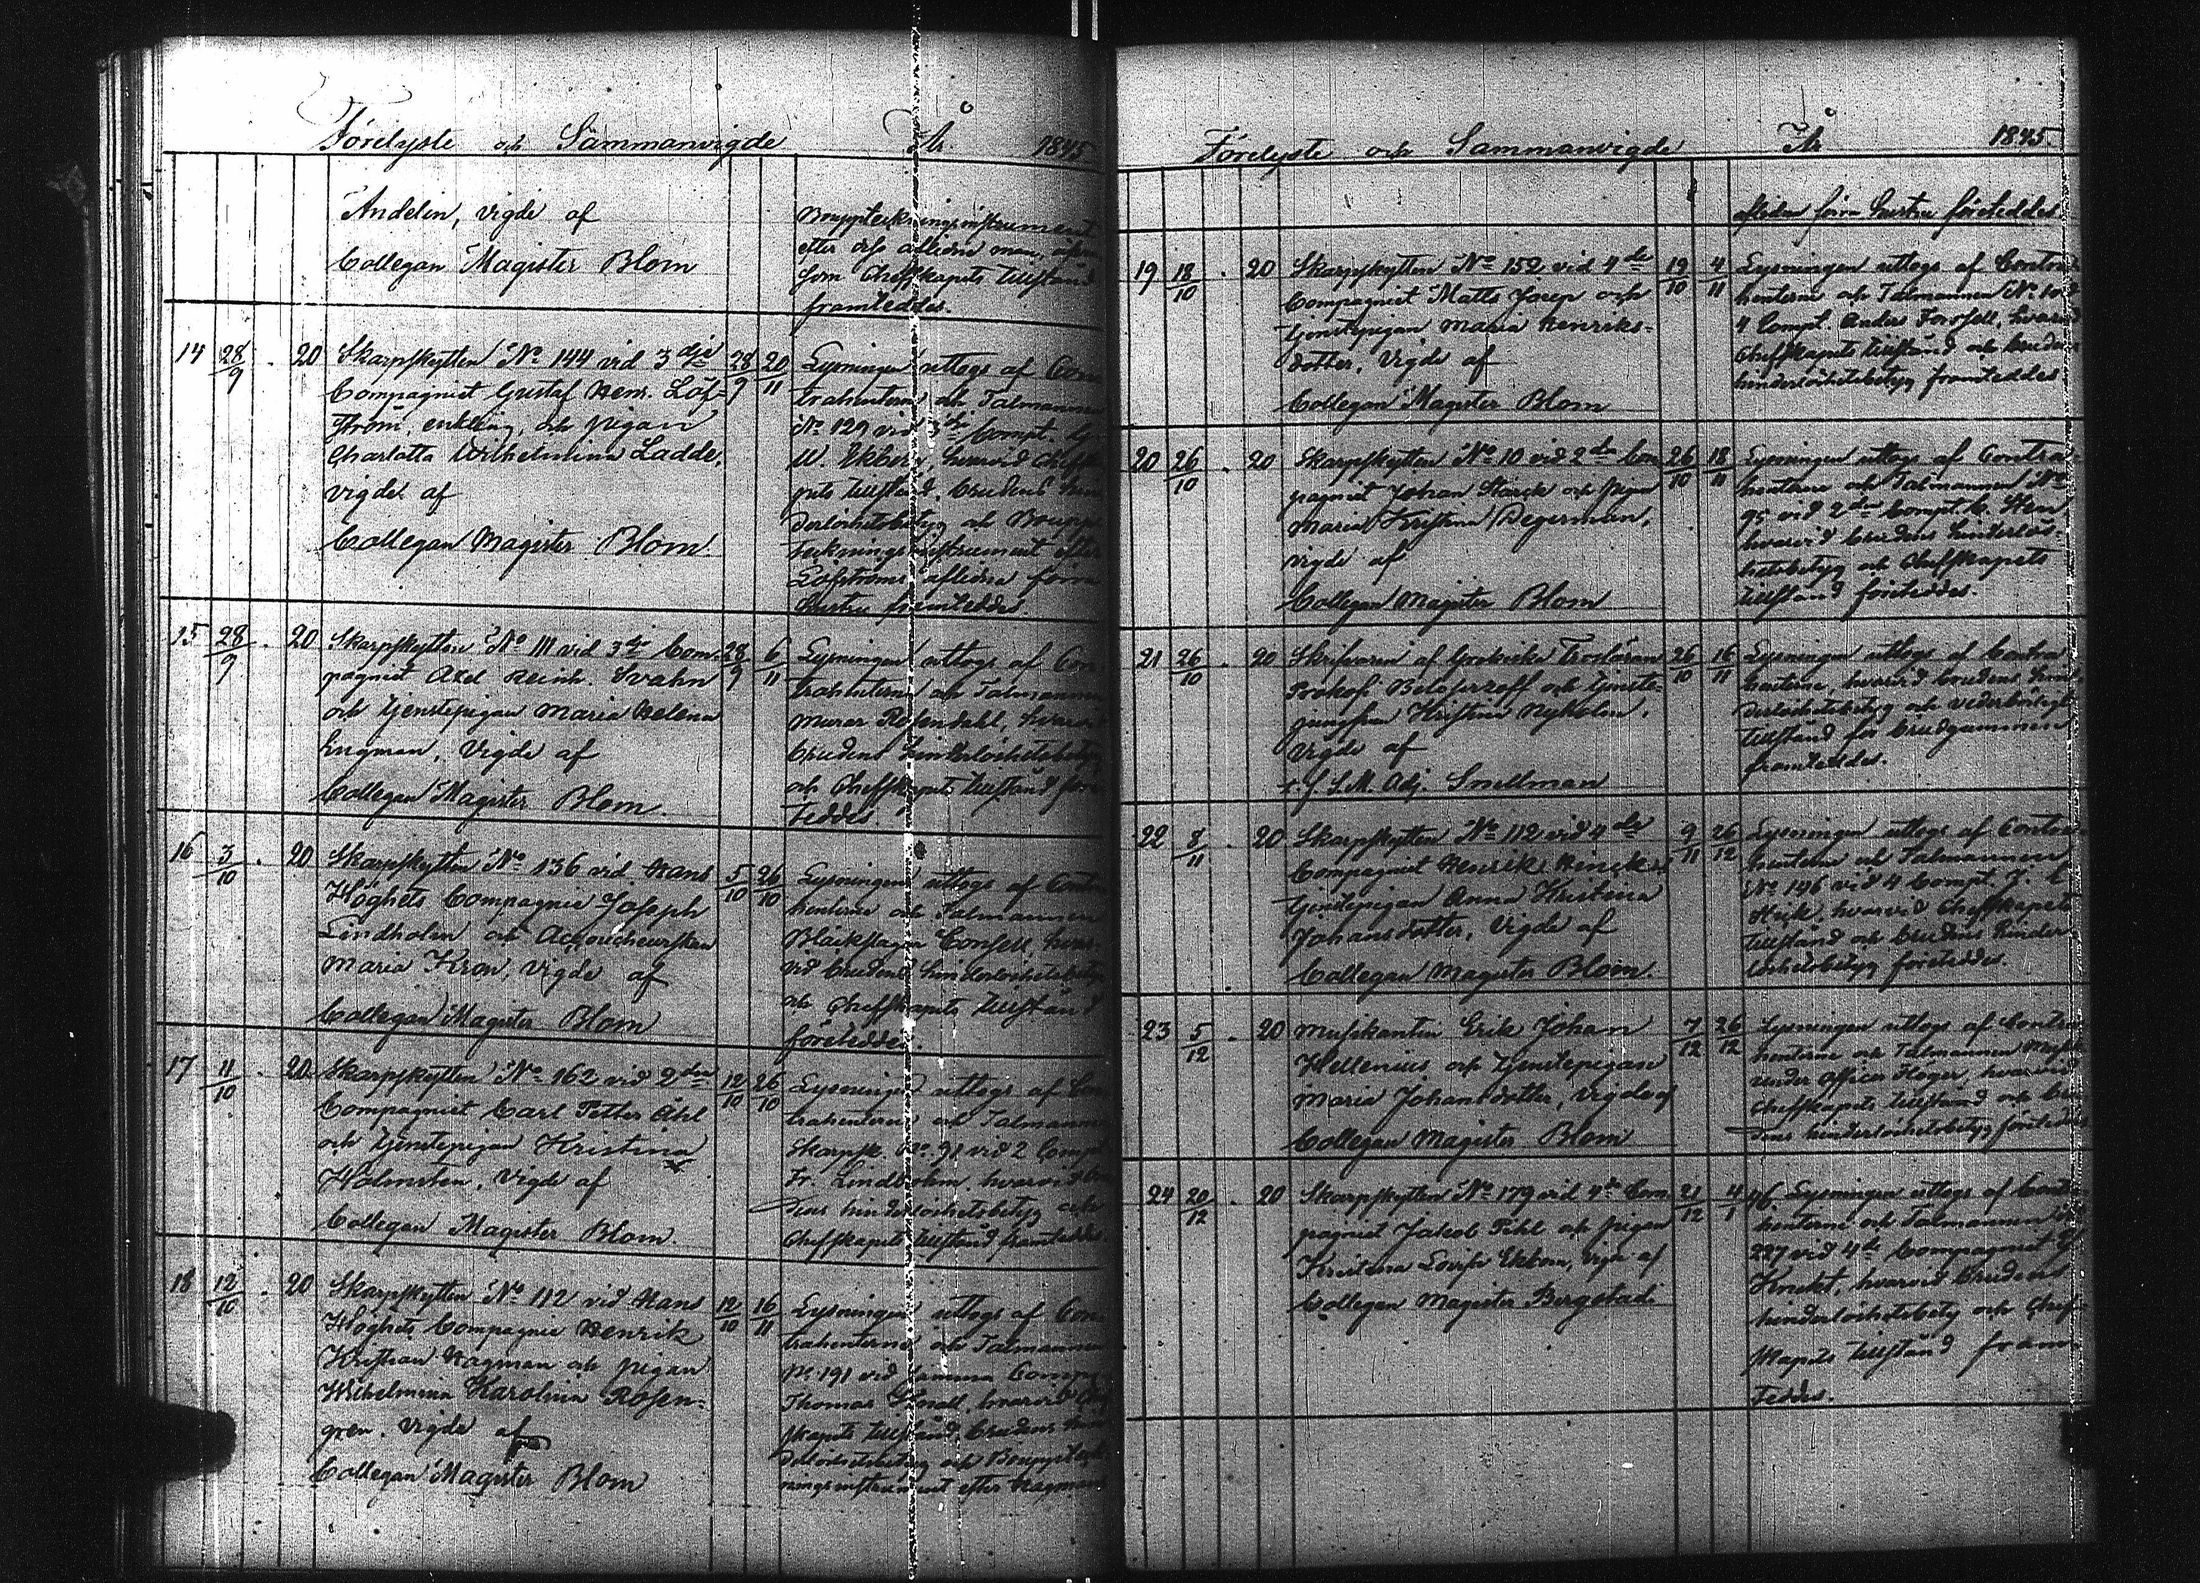 Förelyste och Sammanvigde År 1845
Andelin, vigde af
Collegan Magister Blom
Bouppteckningsinstrument
efter dess aflidne man, äfven
som Cheffskapets tillstånd
framteddes.
14 28/9 . 20 Skarpskytten No 144 vid 3dje 28/9 20/11
Compagniet Gustaf Henr. Löf-
ström, enkling, och pigan
Charlotta Wilhelmina Ladde,
vigde af
Collegan Magister Blom
Lysningen uttogs af Con-
trahenterna och Talmannen
No 129 vid Compt. G.
W. Ekberg, hvarvid Cheffska-
pets tillstånd, brudens hin-
derlöshetsbetyg och Boupp-
teckningsinstrument efter
Löfströms aflidna förra
hustru framteddes.
15 28/9 . 20 Skarpskytten No 111 vid 3dje Com- 28/9 6/11
pagniet Axel Reinh. Svahn
och tjenstepigan Maria Helena
Lugman, vigde af
Collegan Magister Blom.
Lysningen uttogs af Con-
trahenterna och Talmannen
Murar Rosendahl, hvarvid
brudens hinderlöshetsbetyg
och Cheffskapets tillstånd före-
teddes
16 3/10 . 20 Skarpskytten No 136 vid Hans 5/10 26/10
Höghets Compagnie Joseph
Lindholm och Accoucheurskan
Maria Kron, vigde af
Collegan Magister Blom
Lysningen uttogs af Contra-
henterne och Talmannen
Bläckslagar Consell, hvar-
vid brudens hinderlöshetsbetyg
och Cheffskapets tillstånd
företeddes.
17 11/10 . 20 Skarpskytten No 162 vid 2dra 12/10 26/10
Compagniet Carl Petter Åhl
och tjenstepigan Kristina
Holmsten, vigde af
Collegan Magister Blom.
Lysningen uttogs af Con-
trahenterne och Talmannen
Skarpsk. No 91 vid 2 Compt
Fr. Lindholm, hvarvid bru-
dens hinderlöshetsbetyg och
Cheffskapets tillstånd framteddes
18 12/10 . 20 Skarpskytten No 112 vid Hans 12/10 16/11
Höghets Compagnie Henrik
Kristian Hagman och pigan
Wilhelmina Karolina Rosen-
gren. vigde af
Collegan Magister Blom
Lysningen uttogs af Con-
trahenterne och Talmannen
No 191 vid samma Comp.
Thomas Small, hvarvid Cheff-
skapets tillstånd, brudens hin-
derlöshetsbetyg och Boupptek-
ningsinstrument efter Hagmans
Förelyste och Sammanvigde År 1845.
aflidna förra hustru företeddes.
19 18/10 . 20 Skarpskytten No 152 vid 4de 19/10 4/11
Compagniet Matts Jusep och
tjenstepigan Maria Henriks-
dotter, vigde af
Collegan Magister Blom
Lysningen uttogs af Contra-
henterne och Talmannen No
4 Compt. Anders Forssell, hvarvid
Cheffskapets tillstånd och brudens
hinderlöshetsbetyg framteddes
20 26/10 . 20 Skarpskytten No 10 vid 2dra Com- 26/10 18/11
pagniet Johan Starck och pigan
Maria Kristina Degerman,
vigde af
Collegan Magister Blom
Lysningen uttogs af Contra-
henterne och Talmannen No
95 vid 2dra Compt. C. Sten
hvarvid brudens hinderlös-
hetsbetyg och Cheffskapets
tillstånd företeddes.
21 26/10 . 20 Skrifvaren af Grekiska Trosläran 26/10 16/11
Prokofi Beloserzoff och tjenste-
jungfrun Kristina Nykolin,
vigde af
v. f. S.M. Adj. Snellman
Lysningen uttogs af Contra-
henterne, hvarvid brudens hin-
derlöshetsbetyg och vederbörligt
tillstånd för brudgummen
framteddes.
22 8/11 . 20 Skarpskytten No 112 vid 4de 9/11 26/12
Compagniet Henrik Henriks
tjenstepigan Anna Kristina
Johansdotter, vigde af
Collegan Magister Blom.
Lysningen uttogs af Contra-
henterne och Talmannen
No 146 vid 4 Compt. J. C.
Hök, hvarvid Cheffskapets
tillstånd och brudens hinder-
löshetsbetyg företeddes.
23 5/12 . 20 Musikanten Erik Johan 7/12 26/12
Hellenius och tjenstepigan
Maria Johansdotter, vigde af
Collegan Magister Blom
Lysningen uttogs af Contra-
henterne och Talmannen
under officer Höger, hvarvid
Cheffskapets tillstånd och bru-
dens hinderlöshetsbetyg företeddes
24 20/12 . 20 Skarpskytten No 179 vid 4de Com- 21/12 4/1 46.
pagniet Jakob Fihl och pigan
Kristina Lovisa Ekbom, vigde af
Collegan Magister Bergstadi
Lysningen uttogs af Contra-
henterne och Talmannen
227 vid 4de Compagniet
Knekt, hvarvid brudens
hinderlöshetsbetyg och Chef-
skapets tillstånd fram-
teddes.